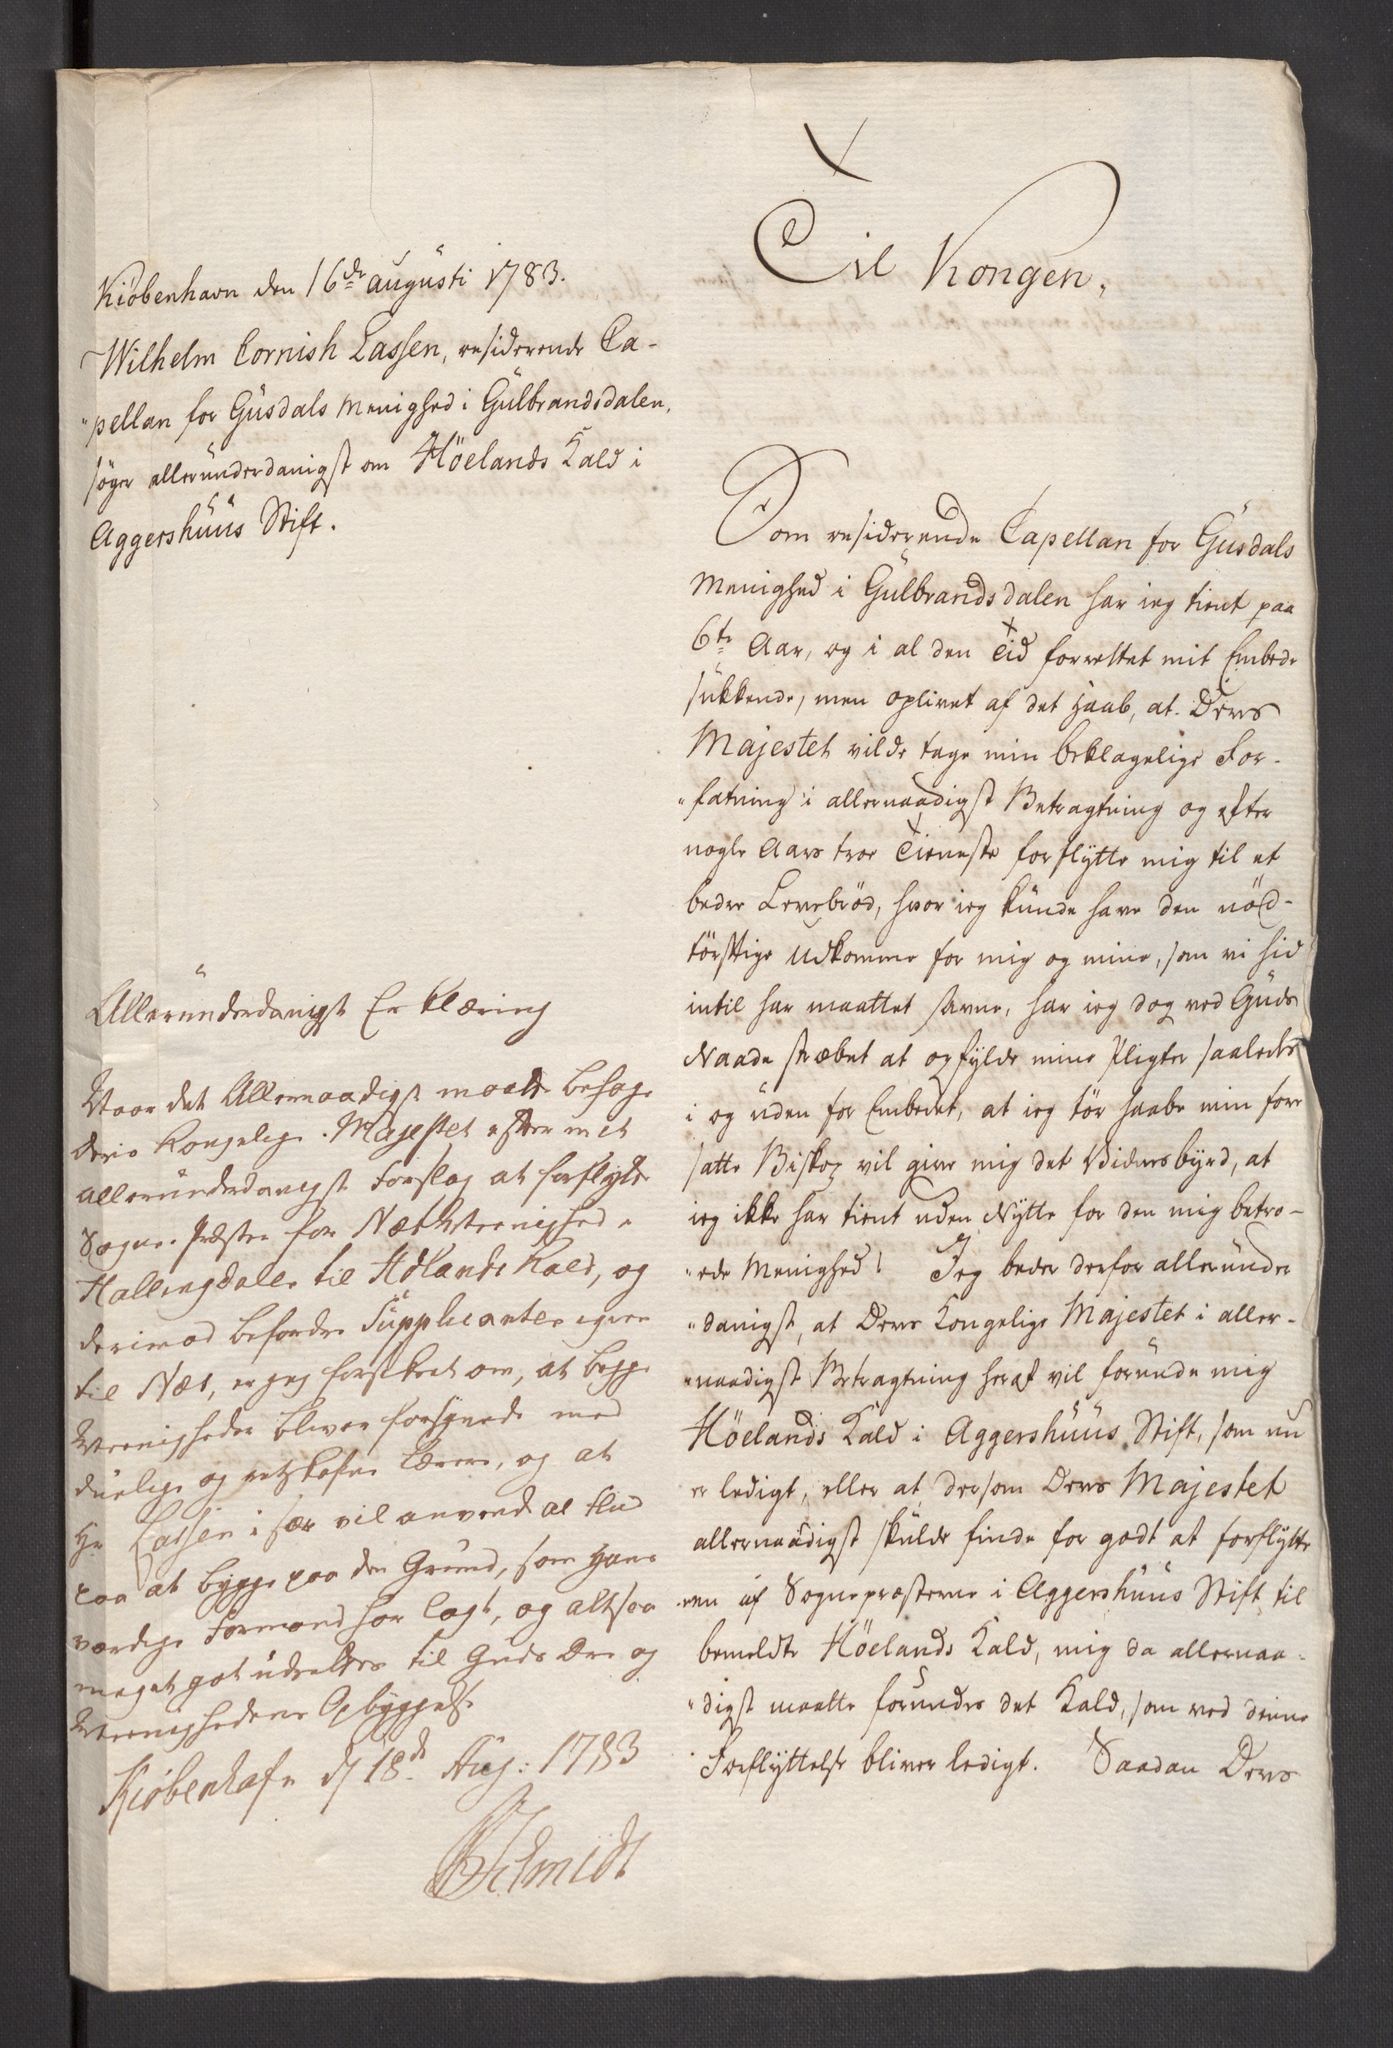 Kiöbenhavn den 16de augusti 1783.
Wilhelm Cornish Lassen, residerende Ca-
"pellan for Gusdals Menighed i Gulbrandsdalen,
söger allerunderdanigst om Höelands Kald i
Aggershuus Stift.
Allerunderdanigst Erklæring
Naar det Allernaadigst maatte behage
Deris Kongelige Majestet efter mit
allerunderdanigst Forslag at forflytte
Sogne Præsten for Næs Menighed i
Hallingdalen til Hölands Kald, og
derimod befordre Supplicanten igien
til Næs, er jeg forsikret om, at begge
Menigheder bliver forsynede med
duelige og retskafne Lærere, og at
Hr Lassen i sær vil anvende al Flid
paa at bygge paa den Grund, som Hans
værdige Formand har lagt, og altsaa
meget got udrettes til Guds Ære og
Menighedens Opbyggelse
Kiöbenhafn d 18de Aug: 1783
Schmidt
Til Kongen.
Som residerende Capellan for Gusdals
Menighed i Gulbrandsdalen har ieg tient paa
6te Aar, og i al den Tid forrettet mit Embede
sukkende, men oplivet af det Haab, at Deres
Majestet vilde tage min beklagelige For-
"fatning i allernaadigst Betragtning og efter
nogle Aars troe Tieneste forflytte mig til et
bedre Levebröd, hvor ieg kunde have den nöd-
törftige Udkomme for mig og mine, som vi hid
indtil har maattet savne, har ieg dog ved Guds
Naade stræbet at opfylde mine Pligter saaledes
i og uden for Embedet, at ieg tör haabe min fore
satte Biskop vil give mig det Vidnesbyrd, at
ieg ikke har tient uden Nytte for den mig betro-
"ede Menighed! Jeg beder derfor allerunder
"danigst, at Deres Kongelige Majestet i aller-
"naadigst Betragtning heraf vil forunde mig
Höelands Kald i Aggershuus Stift, som nu
er ledigt, eller at dersom Deres Majestet
allernaadigst skulde finde for godt at forflytte
een af Sognepræsterne i Aggershuus Stift til
bemeldte Höelands Kald, mig da allernaa-
"digst maatte forundes det Kald, som ved denne
Forflyttelse bliver ledigt. Saadan Deres